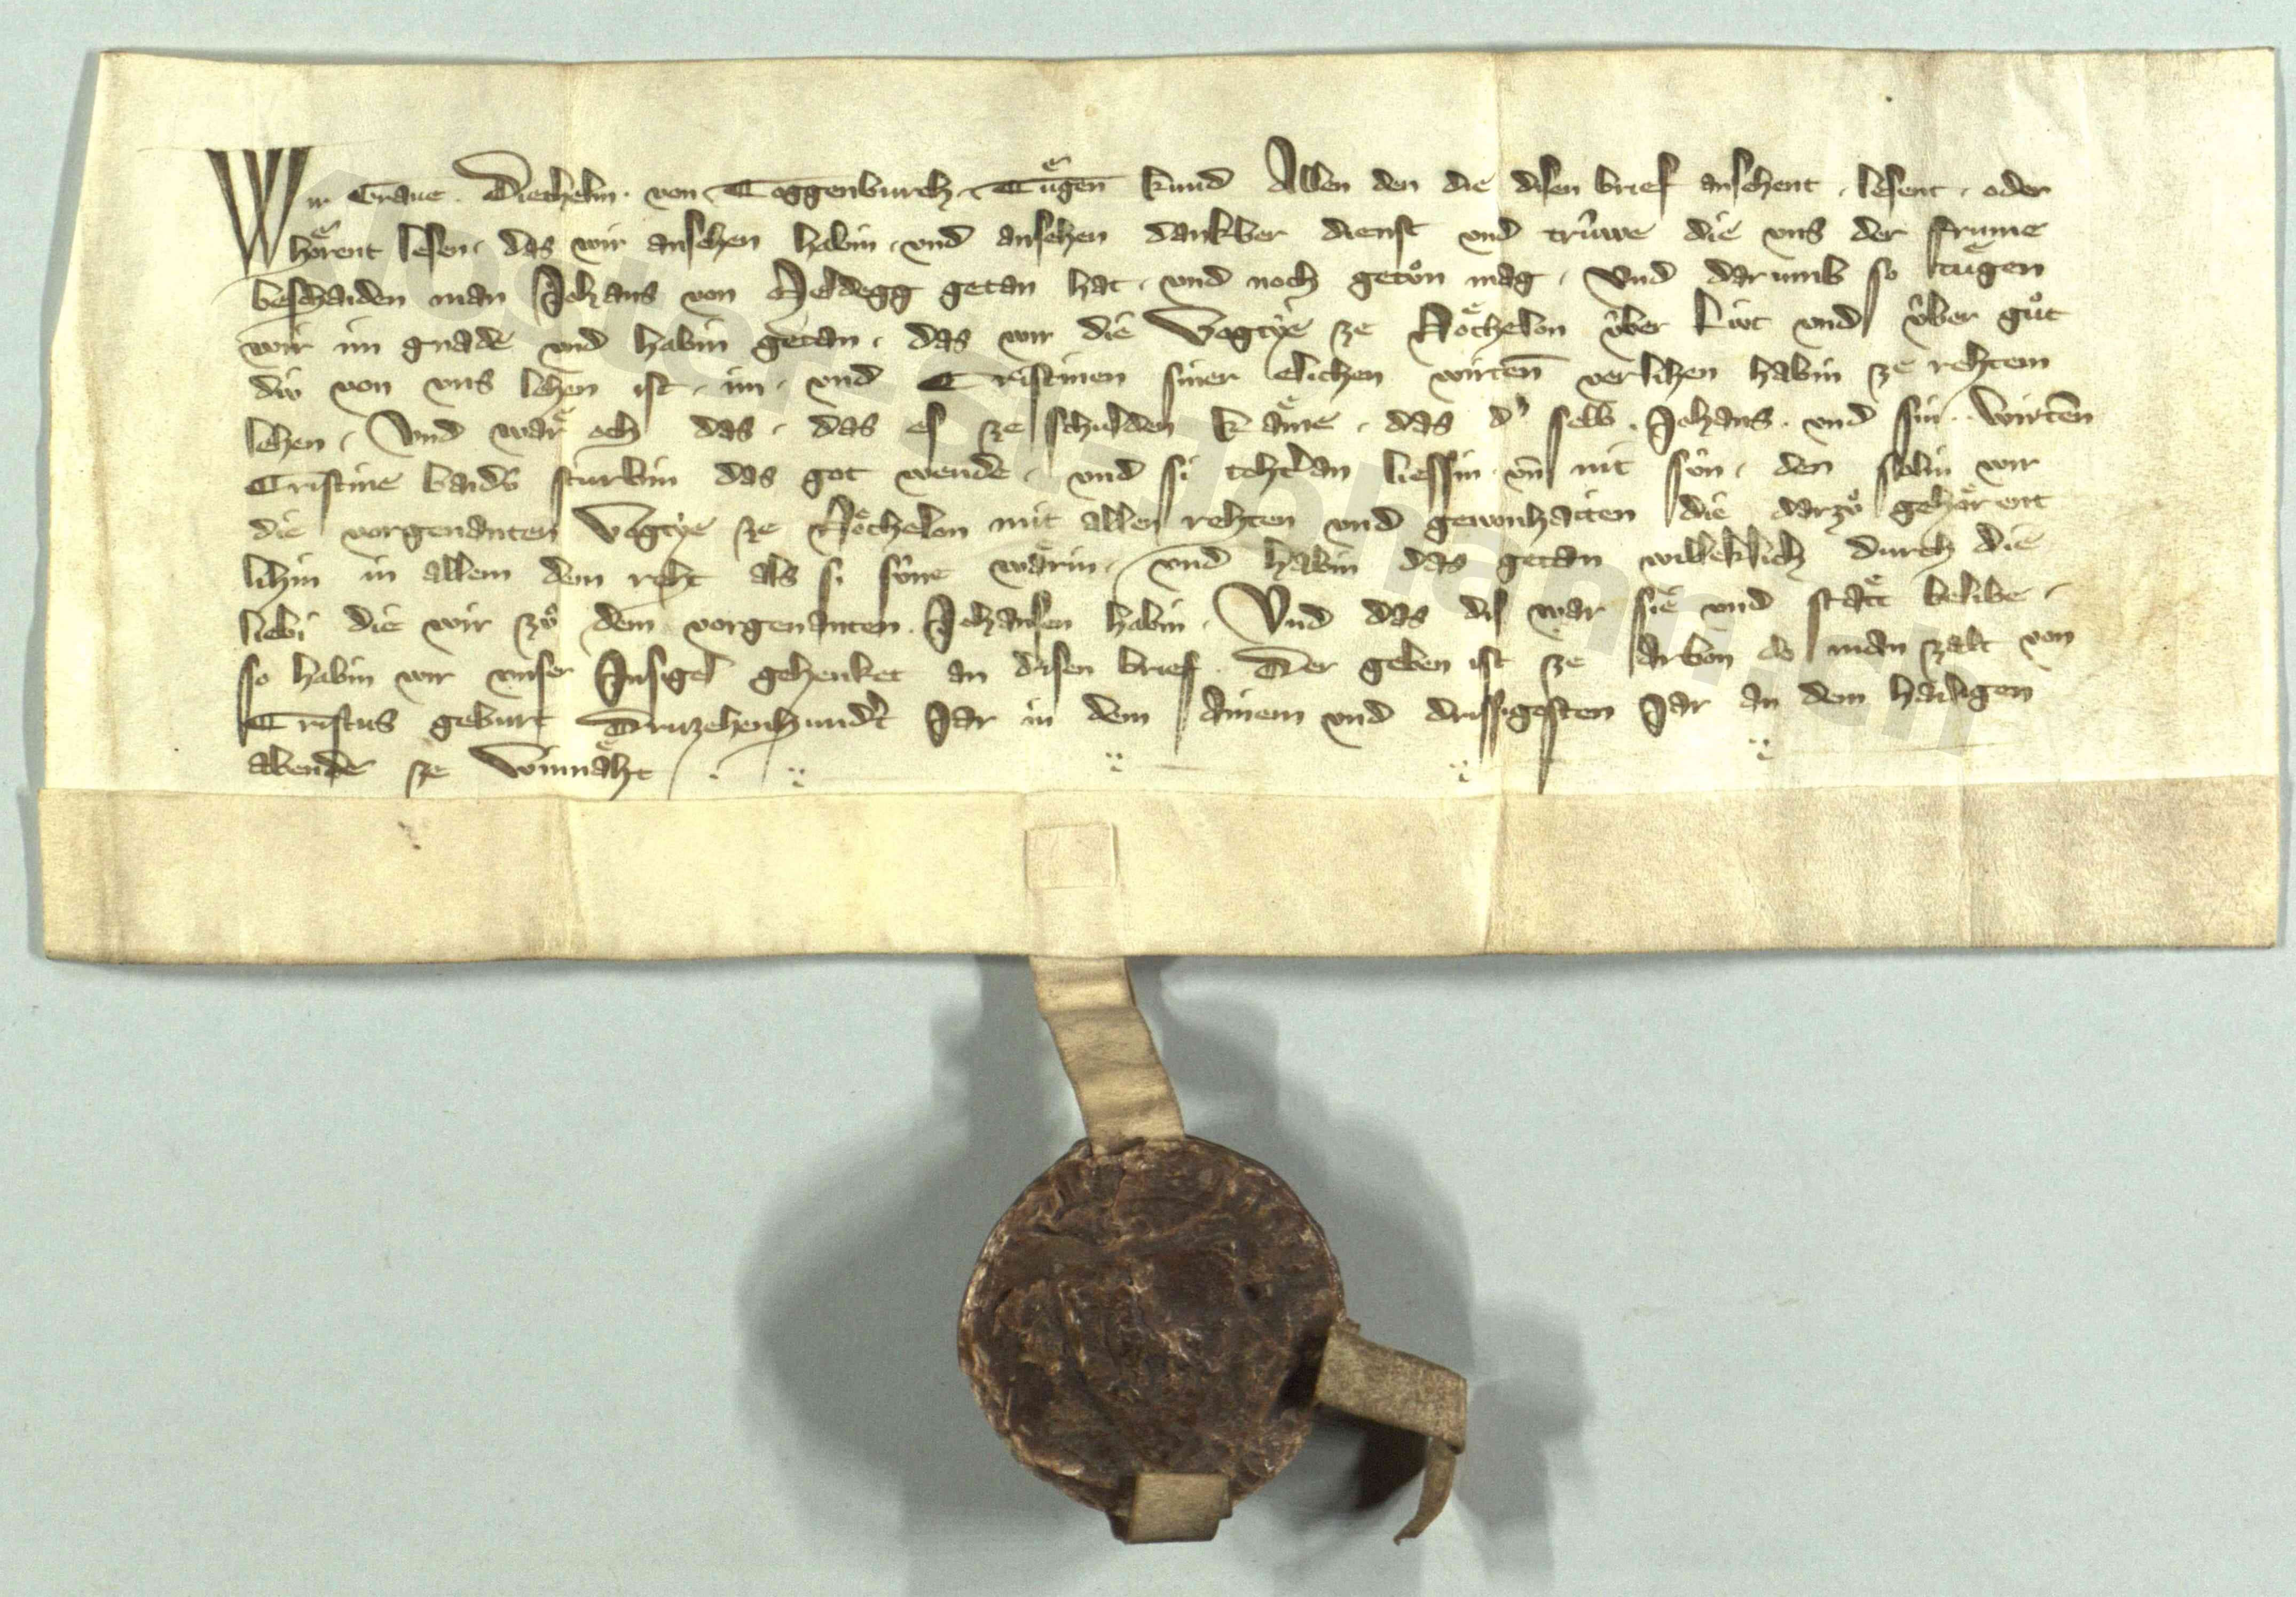 Wir Graue . Diethelm . von Toggenburch . Tuͤgen kund Allen den die disen brief ansehent . lesent . oder
hoͤrent lesen . das wir ansehen habin . vnd ansehen dankber dienst vnd trûwe die vns der frume
beschaiden man Johans von Heldegg getan hat . vnd noch getuͦn mag . Vnd darumb so tuͤgen
wir im gnade vnd habin getan . das wir die Vogtye ze Roͤchelon v̂ber Lúvt vnd v̂ber guͦt
div von vns lehen ist . im . vnd Cristinen siner elichen wirten̄ verlihen habin ze rehtem
lehen . Vnd waͤr och das . das es ze schulden kaͤme . das d' selb . Johans . vnd sin . wirten̄
Cristine baidv̂ sturbin das got wende . vnd si tohtran liessin . vn̄ nit sv̂n . den solin wir
die vorgenanten Vogtye ze Roͤchelon mit allen rehten vnd gewonhaiten die darzuͦ gehoͤrent
lihin in allem dem reht als si sv̂ne waͤrin . vnd habin das getan willeklich durch die
liebi die wir zuͦ dem vorgenanten . Johansen habin . Vnd das dis war sie vnd staͤt belibe .
so habin wir vnser Insigel gehenket an disen brief . Der geben ist ze Arbon do man zalt von
Cristus geburt Druzehenhundr̂t Jar in dem Ainem vnd drissigosten Jar an dem hailigen
abende ze Winnaͤht .